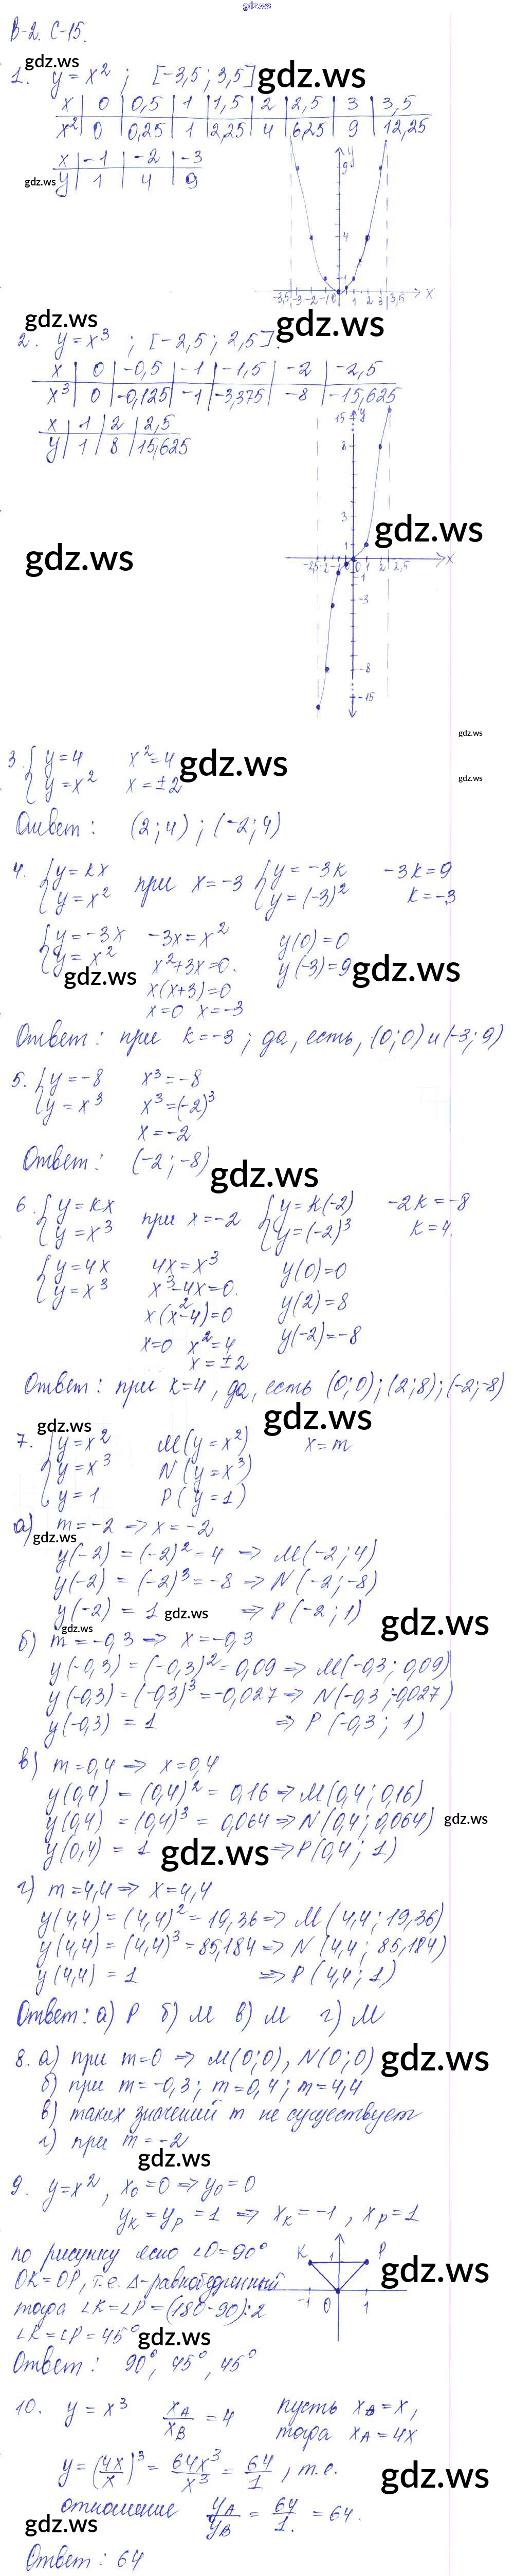 gdz.ws
В-2. С-15.
gdz.ws
1. y = x² ; [-3,5 ; 3,5]
gdz.ws
x | 0 | 0,5 | 1 | 1,5 | 2 | 2,5 | 3 | 3,5
x² | 0 | 0,25 | 1 | 2,25 | 4 | 6,25 | 9 | 12,25
x | -1 | -2 | -3
y | 1 | 4 | 9
gdz.ws
y
9
4
1
-3,5 -3 -2 -1 0 1 2 3 3,5 x
gdz.ws
gdz.ws
2. y = x³ ; [-2,5 ; 2,5].
x | 0 | -0,5 | -1 | -1,5 | -2 | -2,5
x³ | 0 | -0,125 | -1 | -3,375 | -8 | -15,625
x | 1 | 2 | 2,5
y | 1 | 8 | 15,625
15 y
8
3
1
-2,5 -2 -1 0 1 2 2,5 x
-1
-3
-8
-15
gdz.ws
gdz.ws
gdz.ws
3. { y = 4 x² = 4
{ y = x² x = ±2
gdz.ws
gdz.ws
Ответ: (2; 4) ; (-2; 4)
4. { y = kx при x = -3 { y = -3k -3k = 9
{ y = x² { y = (-3)² k = -3
{ y = -3x -3x = x² y(0) = 0
{ y = x² x² + 3x = 0. y(-3) = 9
gdz.ws
gdz.ws
x(x+3) = 0
x = 0 x = -3
Ответ: при k = -3 ; да, есть, (0; 0) и (-3; 9)
5. { y = -8 x³ = -8
{ y = x³ x³ = (-2)³
x = -2
Ответ: (-2; -8)
gdz.ws
6. { y = kx при x = -2 { y = k(-2) -2k = -8
{ y = x³ { y = (-2)³ k = 4.
{ y = 4x 4x = x³ y(0) = 0
{ y = x³ x³ - 4x = 0. y(2) = 8
x(x² - 4) = 0 y(-2) = -8
x = 0 x² = 4
x = ±2
Ответ: при k = 4, да, есть (0; 0) ; (2; 8) ; (-2; -8)
gdz.ws
gdz.ws
7. { y = x² M (y = x²) x = m
{ y = x³ N (y = x³)
{ y = 1 P (y = 1)
а) m = -2 => x = -2
gdz.ws
y(-2) = (-2)² = 4 => M(-2; 4)
y(-2) = (-2)³ = -8 => N(-2; -8)
y(-2) = 1 => P(-2; 1)
gdz.ws
gdz.ws
gdz.ws
б) m = -0,3 => x = -0,3
y(-0,3) = (-0,3)² = 0,09 => M(-0,3; 0,09)
y(-0,3) = (-0,3)³ = -0,027 => N(-0,3; -0,027)
y(-0,3) = 1 => P(-0,3; 1)
в) m = 0,4 => x = 0,4
y(0,4) = (0,4)² = 0,16 => M(0,4; 0,16)
y(0,4) = (0,4)³ = 0,064 => N(0,4; 0,064)
gdz.ws
y(0,4) = 1 => P(0,4; 1)
gdz.ws
г) m = 4,4 => x = 4,4
y(4,4) = (4,4)² = 19,36 => M(4,4; 19,36)
y(4,4) = (4,4)³ = 85,184 => N(4,4; 85,184)
y(4,4) = 1 => P(4,4; 1)
Ответ: а) P б) M в) M г) M
8. а) при m = 0 => M(0; 0), N(0; 0)
gdz.ws
б) при m = -0,3; m = 0,4; m = 4,4
в) таких значений m не существует
г) при m = -2
gdz.ws
9. y = x², x₀ = 0 => y₀ = 0
yₖ = yₚ = 1 => xₖ = -1, xₚ = 1
по рисунку ясно ∠O = 90°
OK = OP, т.е. Δ-равнобедренный
тогда ∠K = ∠P = (180-90):2
∠K = ∠P = 45°
K 1 P
-1 0 1
gdz.ws
gdz.ws
Ответ: 90°, 45°, 45°
10. y = x³ x_A/x_B = 4 пусть x_B = x,
тогда x_A = 4x
y = (4x/x)³ = 64x³/x³ = 64/1, т.е.
gdz.ws
отношение y_A/y_B = 64/1. = 64.
gdz.ws
Ответ: 64